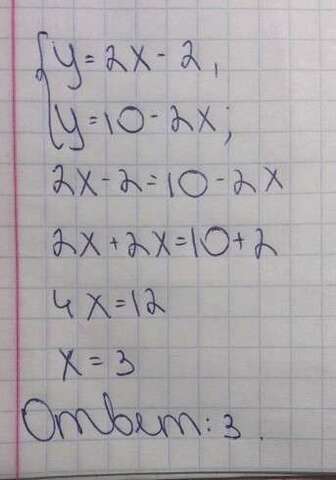 {y=2x-2,
y=10-2x;
2x-2=10-2x
2x+2x=10+2
4x=12
x=3
Ответ: 3.